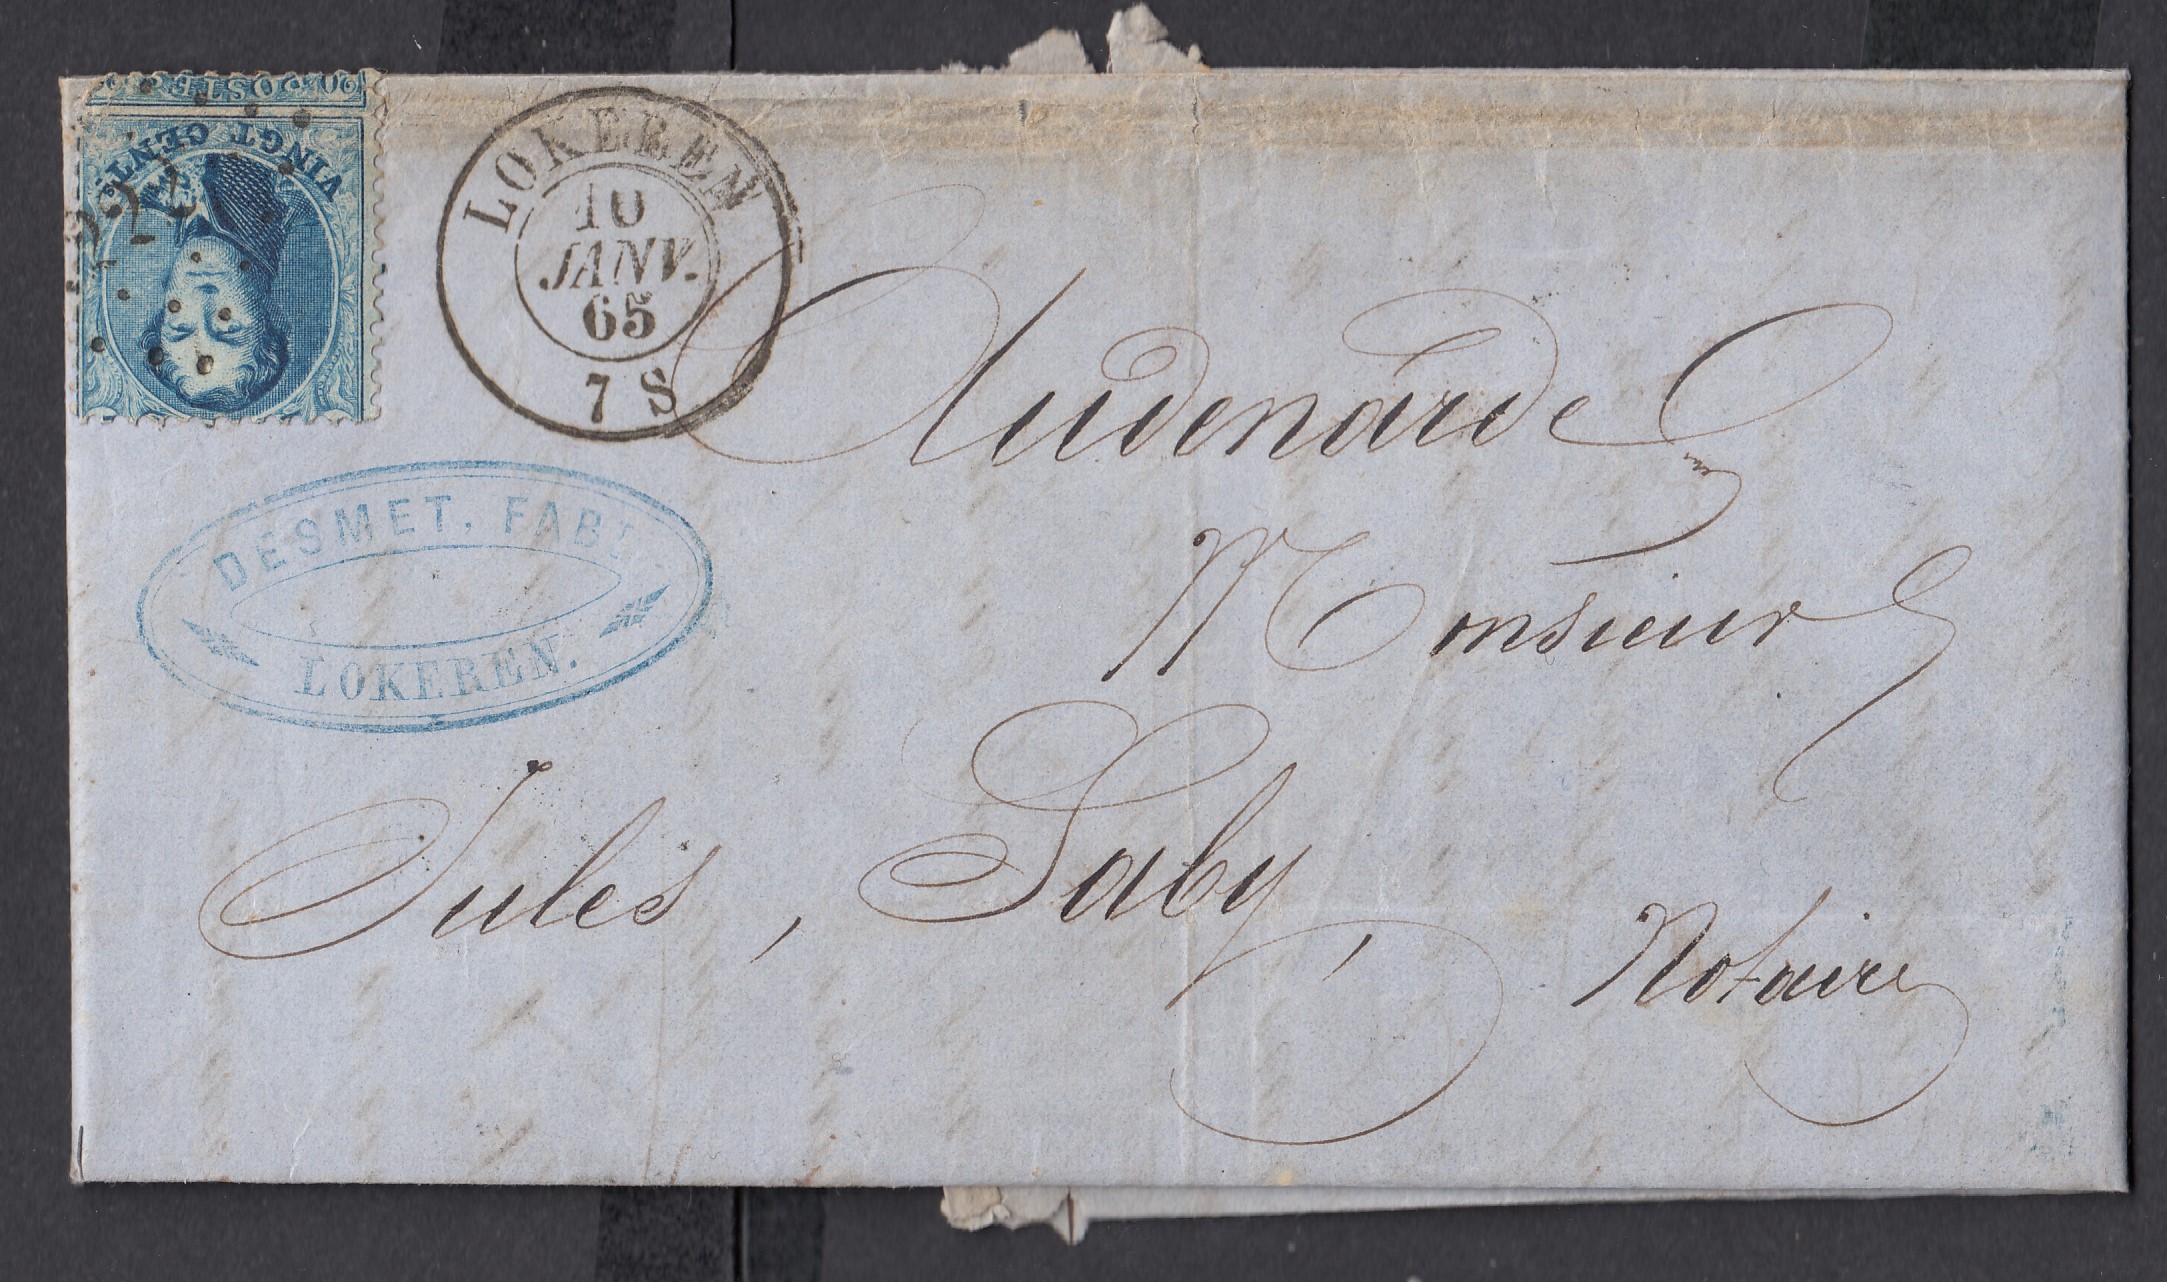 20 POSTE
VINGT CENT.
LOKEREN
10
JANV.
65
7 S
Audenarde
DESMET. FABT
LOKEREN.
Monsieur
Jules, Saby
Notaire